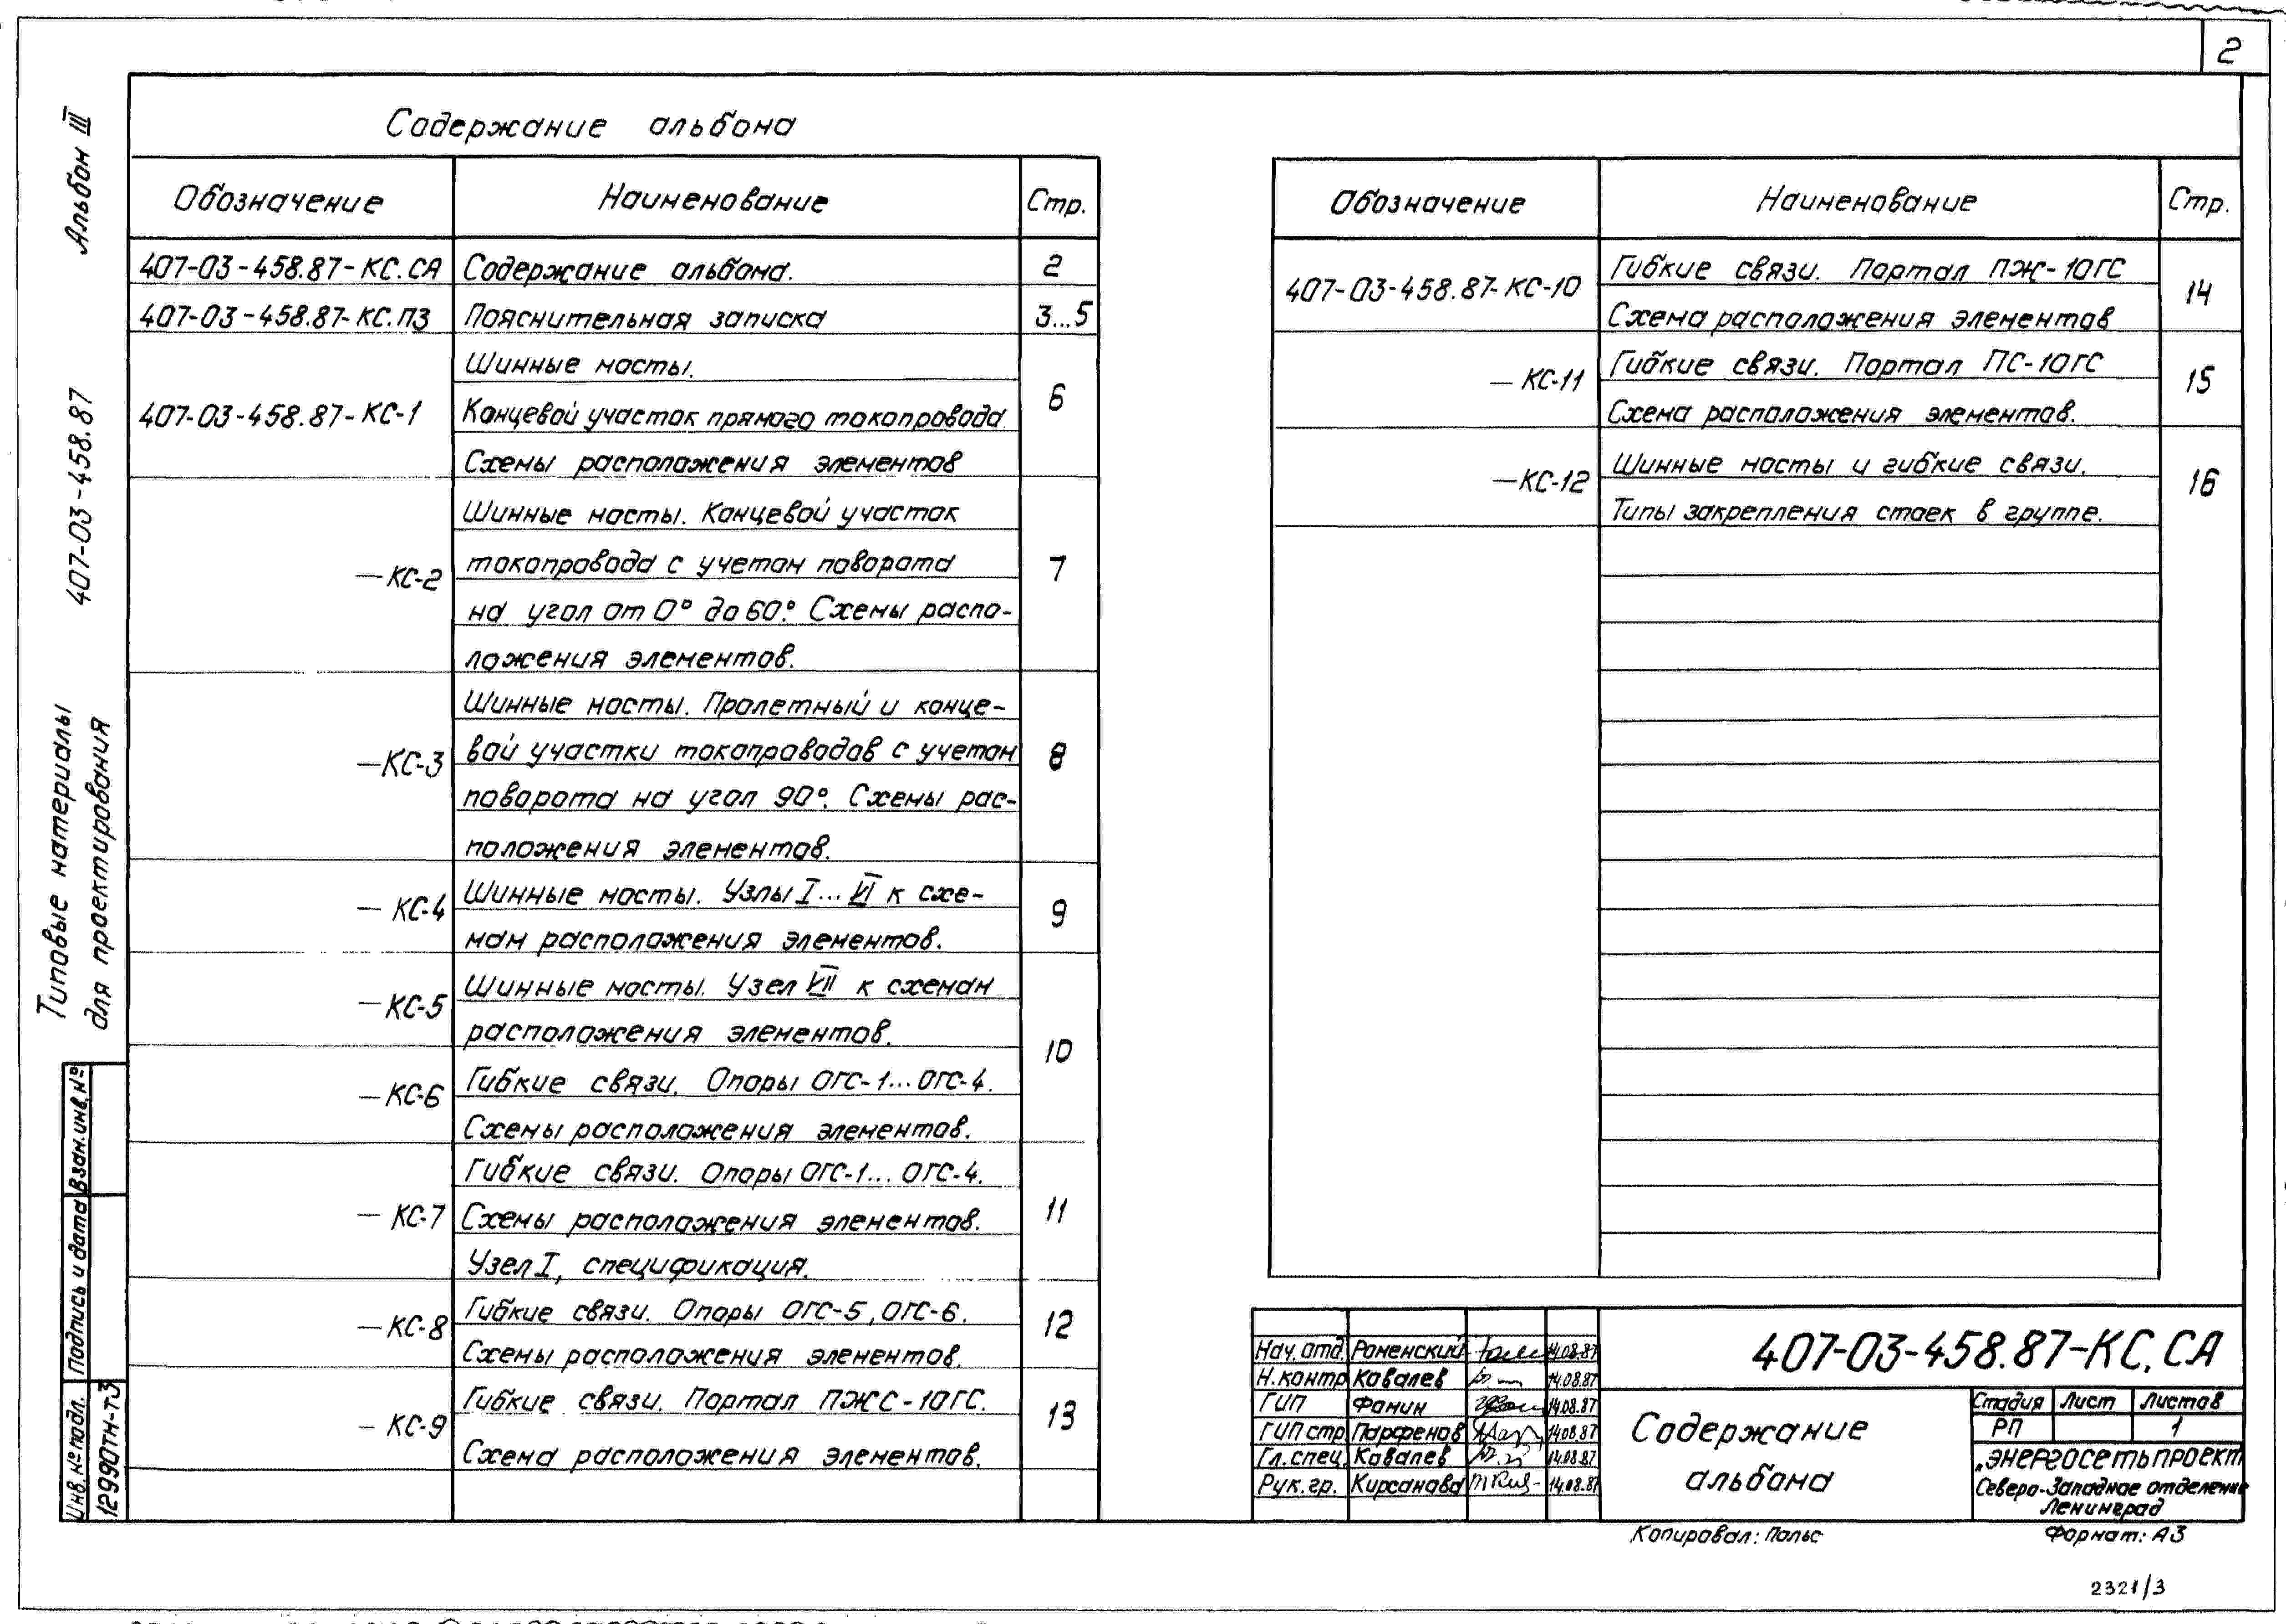 2
Альбом III
407-03-458.87
Типовые материалы
для проектирования
Содержание альбома
Обозначение Наименование Стр.
407-03-458.87-КС.СА Содержание альбома. 2
407-03-458.87-КС.ПЗ Пояснительная записка 3...5
Шинные мосты.
407-03-458.87-КС-1 Концевой участок прямого токопровода. 6
Схемы расположения элементов
Шинные мосты. Концевой участок
—КС-2 токопровода с учетом поворота 7
на угол от 0° до 60°. Схемы распо-
ложения элементов.
Шинные мосты. Пролетный и конце-
—КС-3 вой участки токопроводов с учетом 8
поворота на угол 90°. Схемы рас-
положения элементов.
—КС-4 Шинные мосты. Узлы I...VI к схе- 9
мам расположения элементов.
—КС-5 Шинные мосты. Узел VII к схемам
расположения элементов.
10
—КС-6 Гибкие связи. Опоры ОГС-1...ОГС-4.
Схемы расположения элементов.
Гибкие связи. Опоры ОГС-1...ОГС-4.
—КС-7 Схемы расположения элементов. 11
Узел I, спецификация.
—КС-8 Гибкие связи. Опоры ОГС-5, ОГС-6. 12
Схемы расположения элементов.
—КС-9 Гибкие связи. Портал ПЖС-10ГС. 13
Схема расположения элементов.
Обозначение Наименование Стр.
407-03-458.87-КС-10 Гибкие связи. Портал ПЖ-10ГС 14
Схема расположения элементов
—КС-11 Гибкие связи. Портал ПС-10ГС 15
Схема расположения элементов.
—КС-12 Шинные мосты и гибкие связи. 16
Типы закрепления стоек в группе.
Взам.инв.№
Подпись и дата
Инв.№подл.
12990тм-т3
Нач.отд. Роменский 14.08.87
Н.контр Ковалев 14.08.87
ГИП Фомин 14.08.87
ГИП стр. Парфенов 14.08.87
Гл.спец. Ковалев 14.08.87
Рук.гр. Кирсанова 14.08.87
407-03-458.87-КС.СА
Содержание
альбома
Стадия Лист Листов
РП 1
„ЭНЕРГОСЕТЬПРОЕКТ
Северо-Западное отделение
Ленинград
Копировал: Польс
Формат: А3
2321/3